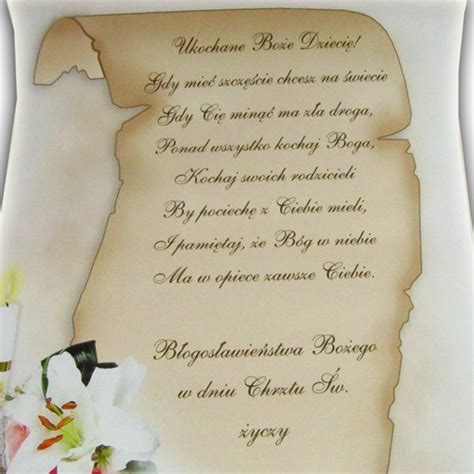 Ukochane Boże Dziecię!
Gdy mieć szczęście chcesz na świecie
Gdy Cię minąć ma zła droga,
Ponad wszystko kochaj Boga,
Kochaj swoich rodzicieli
By pociechę z Ciebie mieli,
I pamiętaj, że Bóg w niebie
Ma w opiece zawsze Ciebie.
Błogosławieństwa Bożego
w dniu Chrztu Św.
życzy